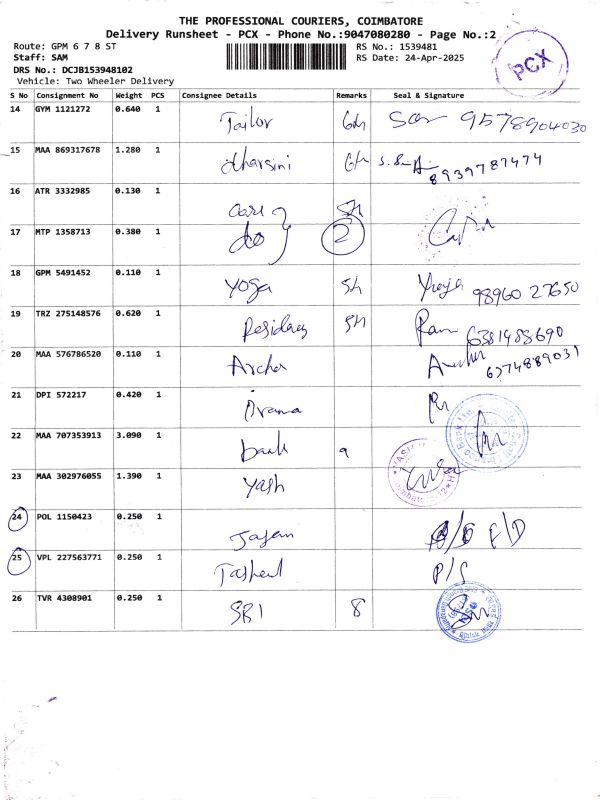 THE PROFESSIONAL COURIERS, COIMBATORE
Delivery Runsheet - PCX - Phone No.:9047080280 - Page No.:2
Route: GPM 6 7 8 ST
RS No.: 1539481
Staff: SAM
RS Date: 24-Apr-2025
DRS No.: DCJB153948102
Vehicle: Two Wheeler Delivery
PCX
S No Consignment No Weight PCS Consignee Details Remarks Seal & Signature
14 GYM 1121272 0.640 1 Tailor 9578904030
15 MAA 869317678 1.280 1 dharsini 8939787474
16 ATR 3332985 0.130 1
17 MTP 1358713 0.380 1 do 2
18 GPM 5491452 0.110 1 Yoga 98960 27650
19 TRZ 275148576 0.620 1 Residency Ram 6381488690
20 MAA 576786520 0.110 1 Archer 6374889031
21 DPI 572217 0.420 1
22 MAA 707353913 3.090 1 bank 9
23 MAA 302976055 1.390 1 Yash
24 POL 1150423 0.250 1
25 VPL 227563771 0.250 1 P/S
26 TVR 4308901 0.250 1 SBI 8